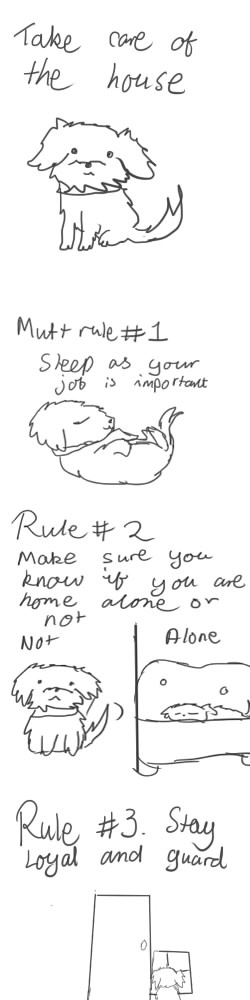 Take care of
the house
Mutt rule #1
Sleep as your
job is important
Rule # 2
Make sure you
know if you are
home alone or
not
Not
Alone
Rule #3. Stay
Loyal and guard